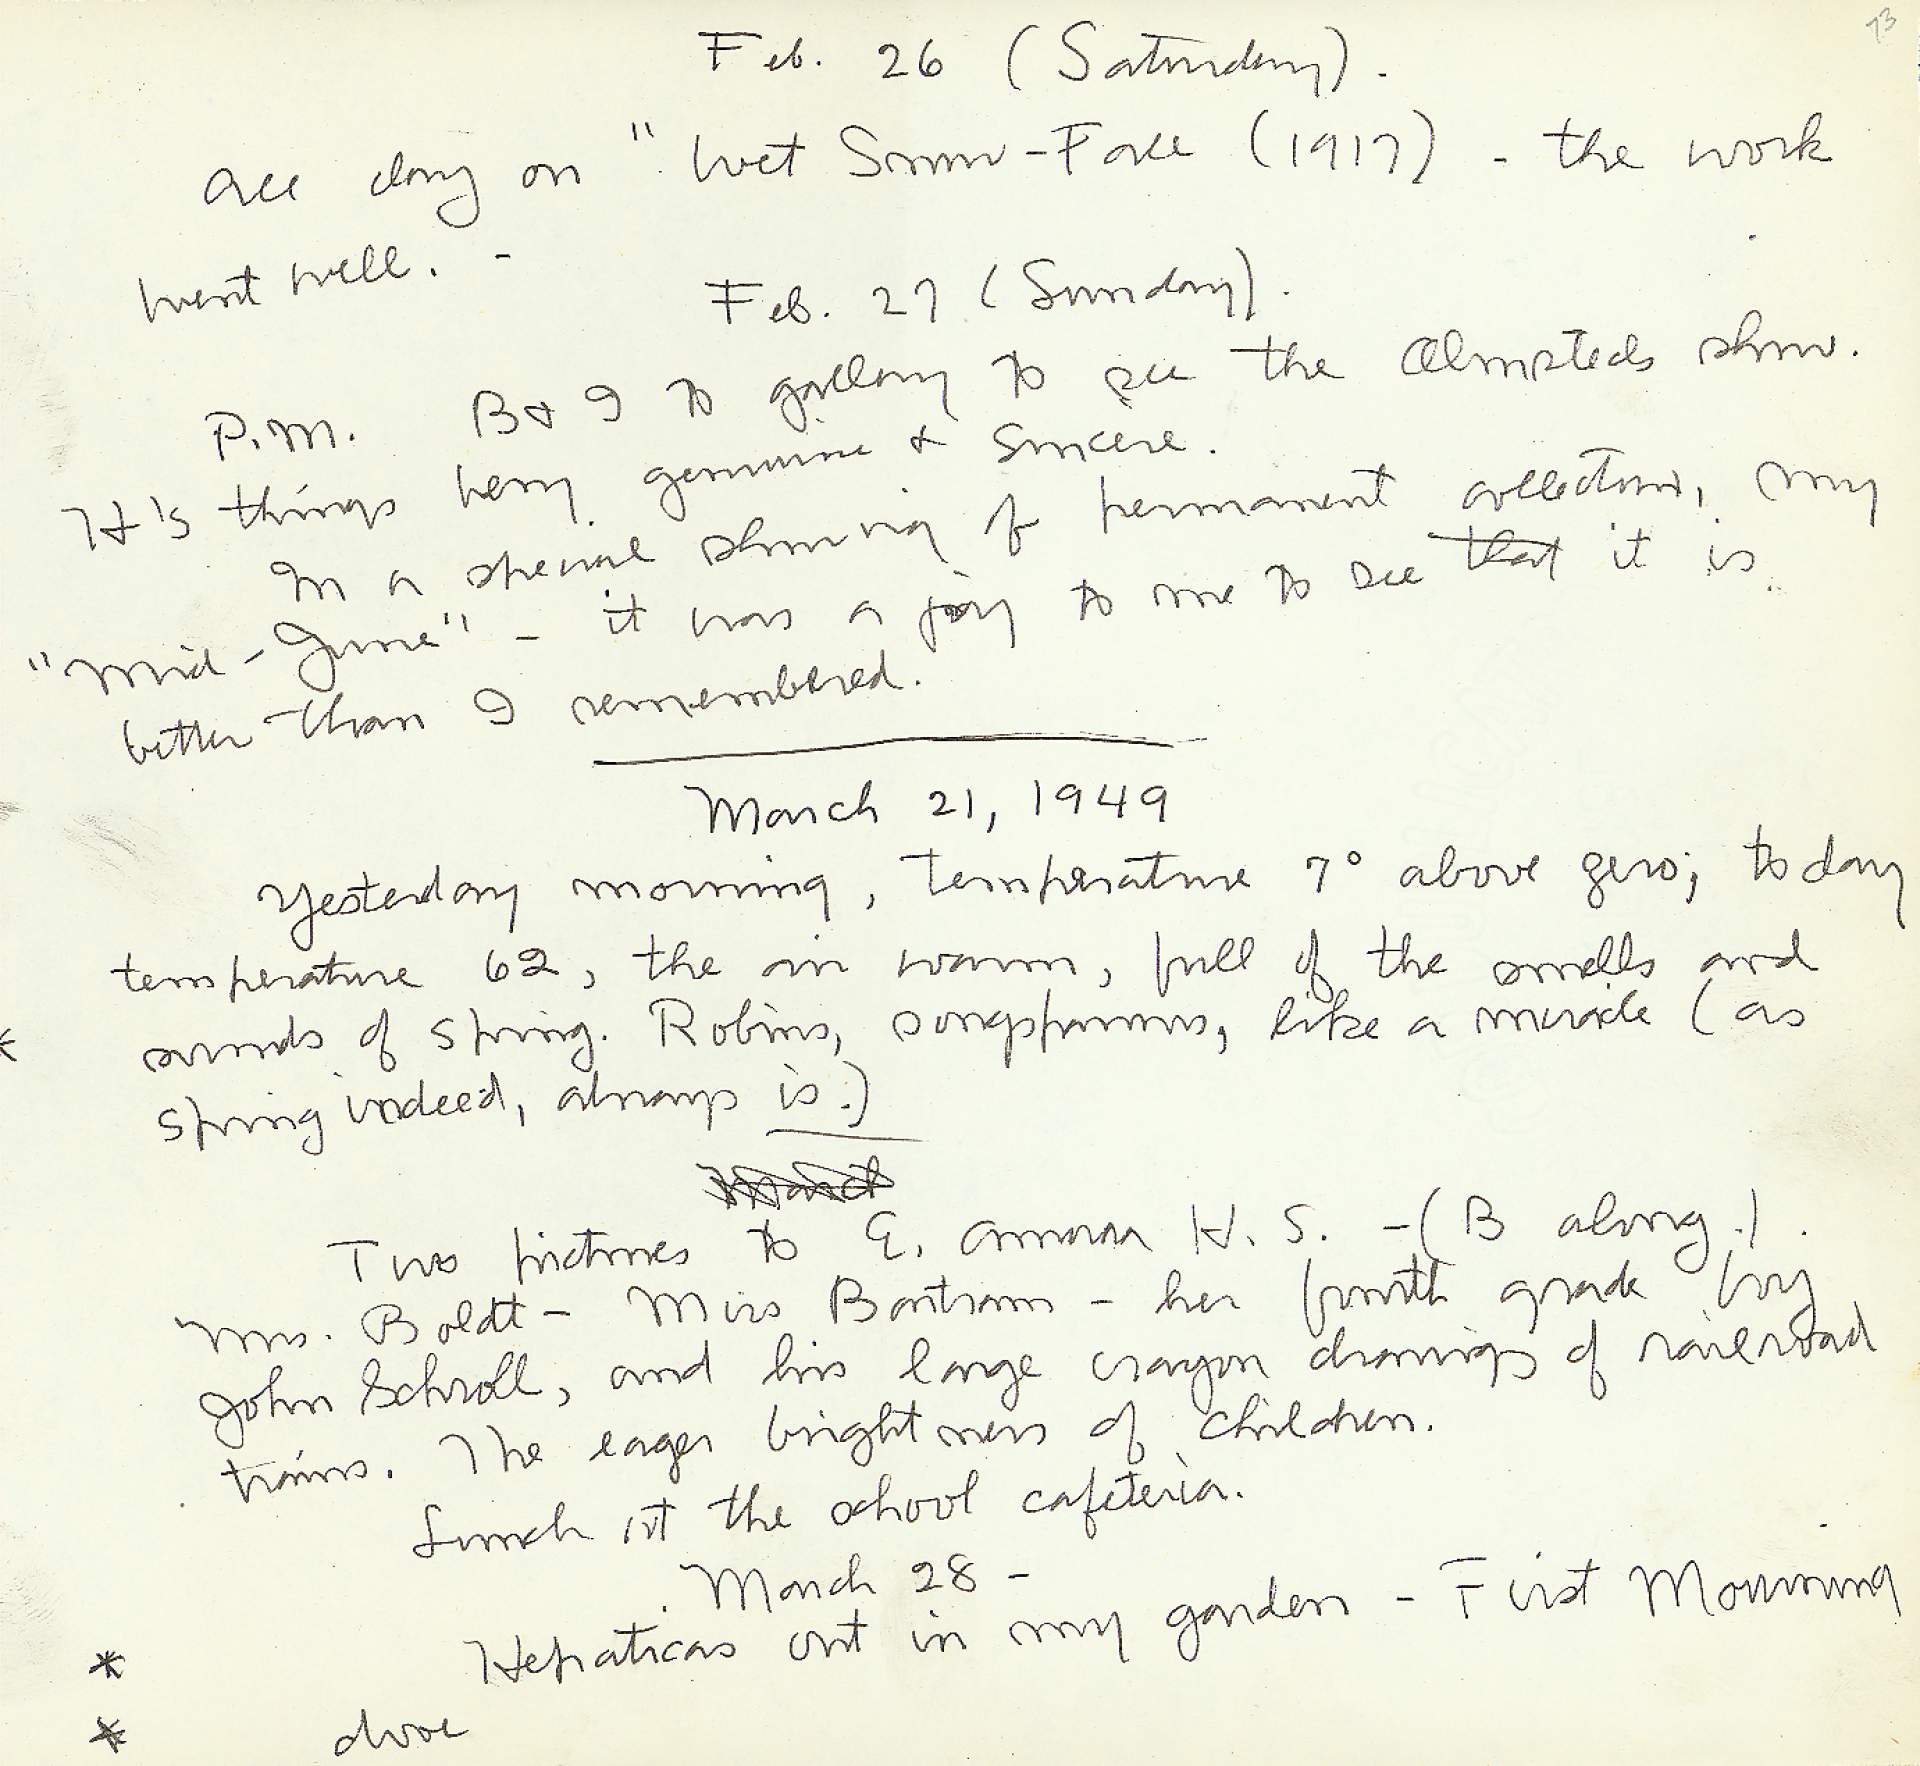 73
Feb. 26 (Saturday).
All day on "Wet Snow-Fall (1917) - the work
went well. -
Feb. 27 (Sunday).
P.M. B & I to gallery to see the Olmsteds show.
H's things very genuine & sincere.
In a special showing of permanent collection, my
"Mid-June" - it was a joy to me to see that it is
better than I remembered.
March 21, 1949
Yesterday morning, temperature 7° above zero; today
temperature 62, the air warm, full of the smells and
* sounds of spring. Robins, songsparrows, like a miracle (as
spring indeed, always is.)
March
Two pictures to E. Aurora H.S. - (B along.).
Mrs. Boldt - Miss Bartram - her fourth grade boy
John Schroll, and his large crayon drawings of railroad
trains. The eager brightness of children.
Lunch at the school cafeteria.
March 28 -
* Hepaticas out in my garden - First Mourning
* dove